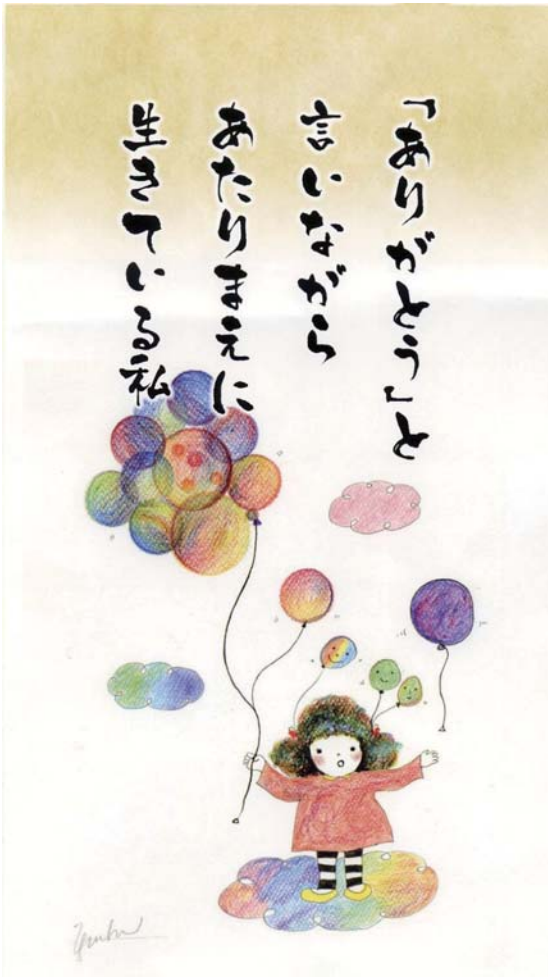 「ありがとう」と
言いながら
あたりまえに
生きている私